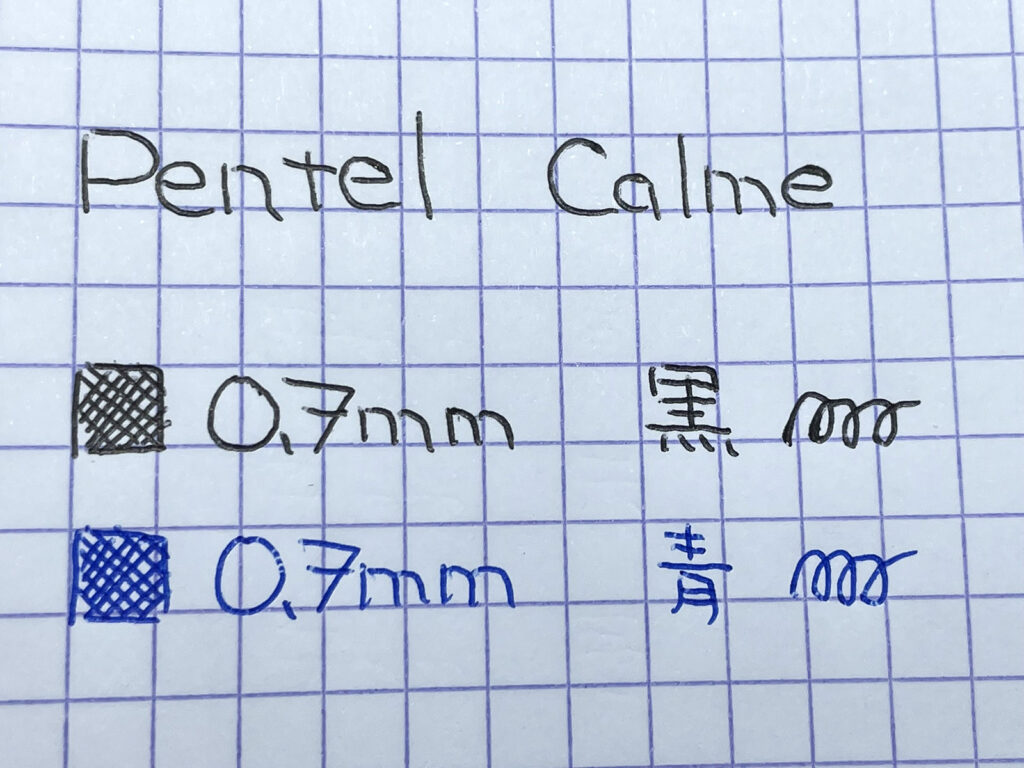 Pentel Calme
0.7mm 黒
0.7mm 青